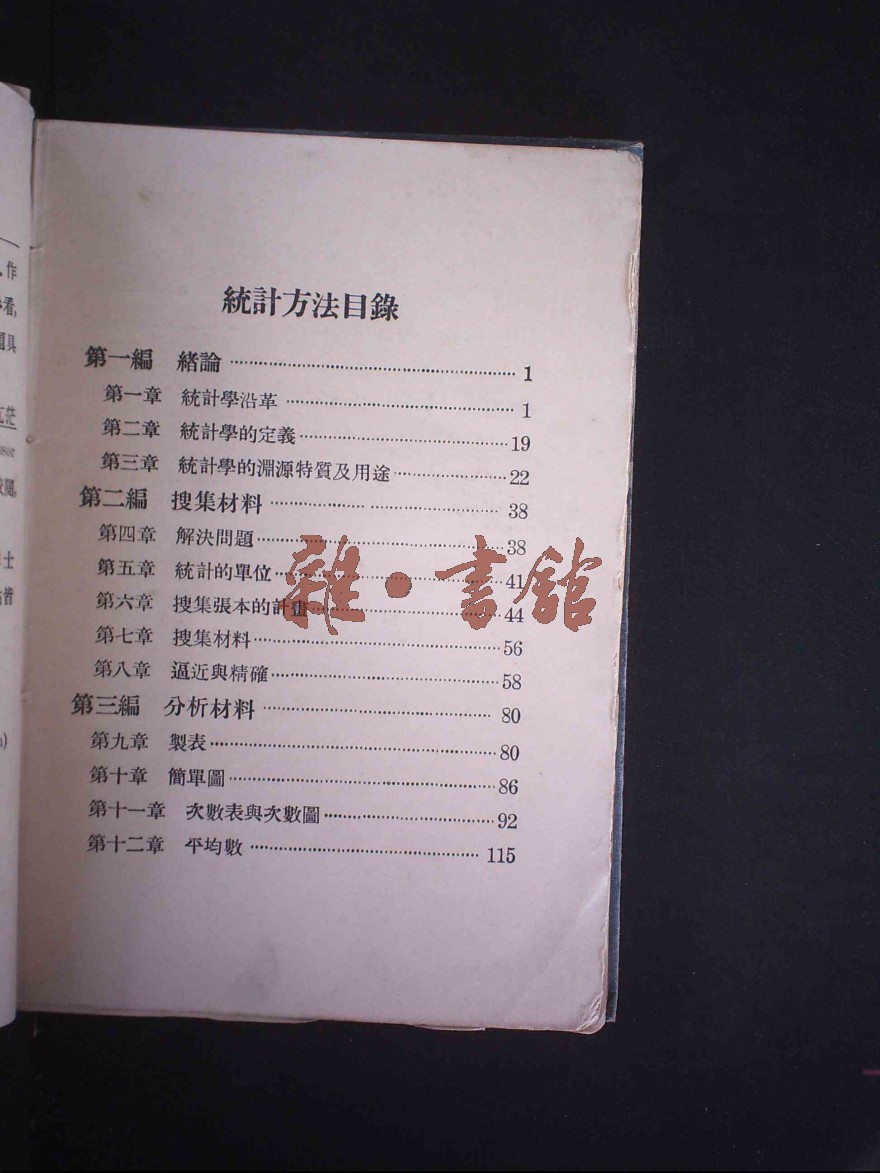 統計方法目錄
第一編 緒論 1
第一章 統計學沿革 1
第二章 統計學的定義 19
第三章 統計學的淵源特質及用途 22
第二編 搜集材料 38
第四章 解決問題 38
第五章 統計的單位 41
第六章 搜集張本的計畫 44
第七章 搜集材料 56
第八章 逼近與精確 58
第三編 分析材料 80
第九章 製表 80
第十章 簡單圖 86
第十一章 次數表與次數圖 92
第十二章 平均數 115
雜·書館
作
看,
具
茫
士
皆